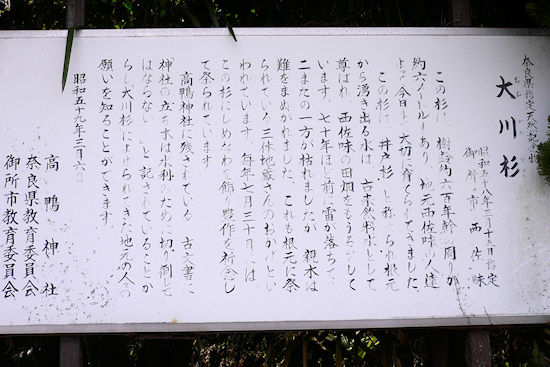 奈良県指定天然記念物
大川杉
昭和五十八年三月十五日指定
御所市西佐味
この杉は、樹齢約六百年幹の周りが
約六メートルあり、地元西佐味の人達に
よって今日まで大切に育くられてきました。
この杉は、井戸杉と称せられ根元
から湧き出る水は、古来飲料水として
尊ばれ、西佐味の田畑をもうるおして
います。七十年ほど前に雷が落ちて、
二またの一方が枯れましたが、親木は
難をまぬがれました。これも根元に祭
られている三体地蔵さんのおかげとい
われています。毎年七月三十日には、
この杉にしめなわを飾り豊作を祈念し
て祭られています。
高鴨神社に残されている古文書に
神社の立ち木は水利のために切り倒して
はならない と記されていることか
らも大川杉によせられてきた地元の人の
願いを知ることができます。
昭和五十九年三月六日
高鴨神社
奈良県教育委員会
御所市教育委員会